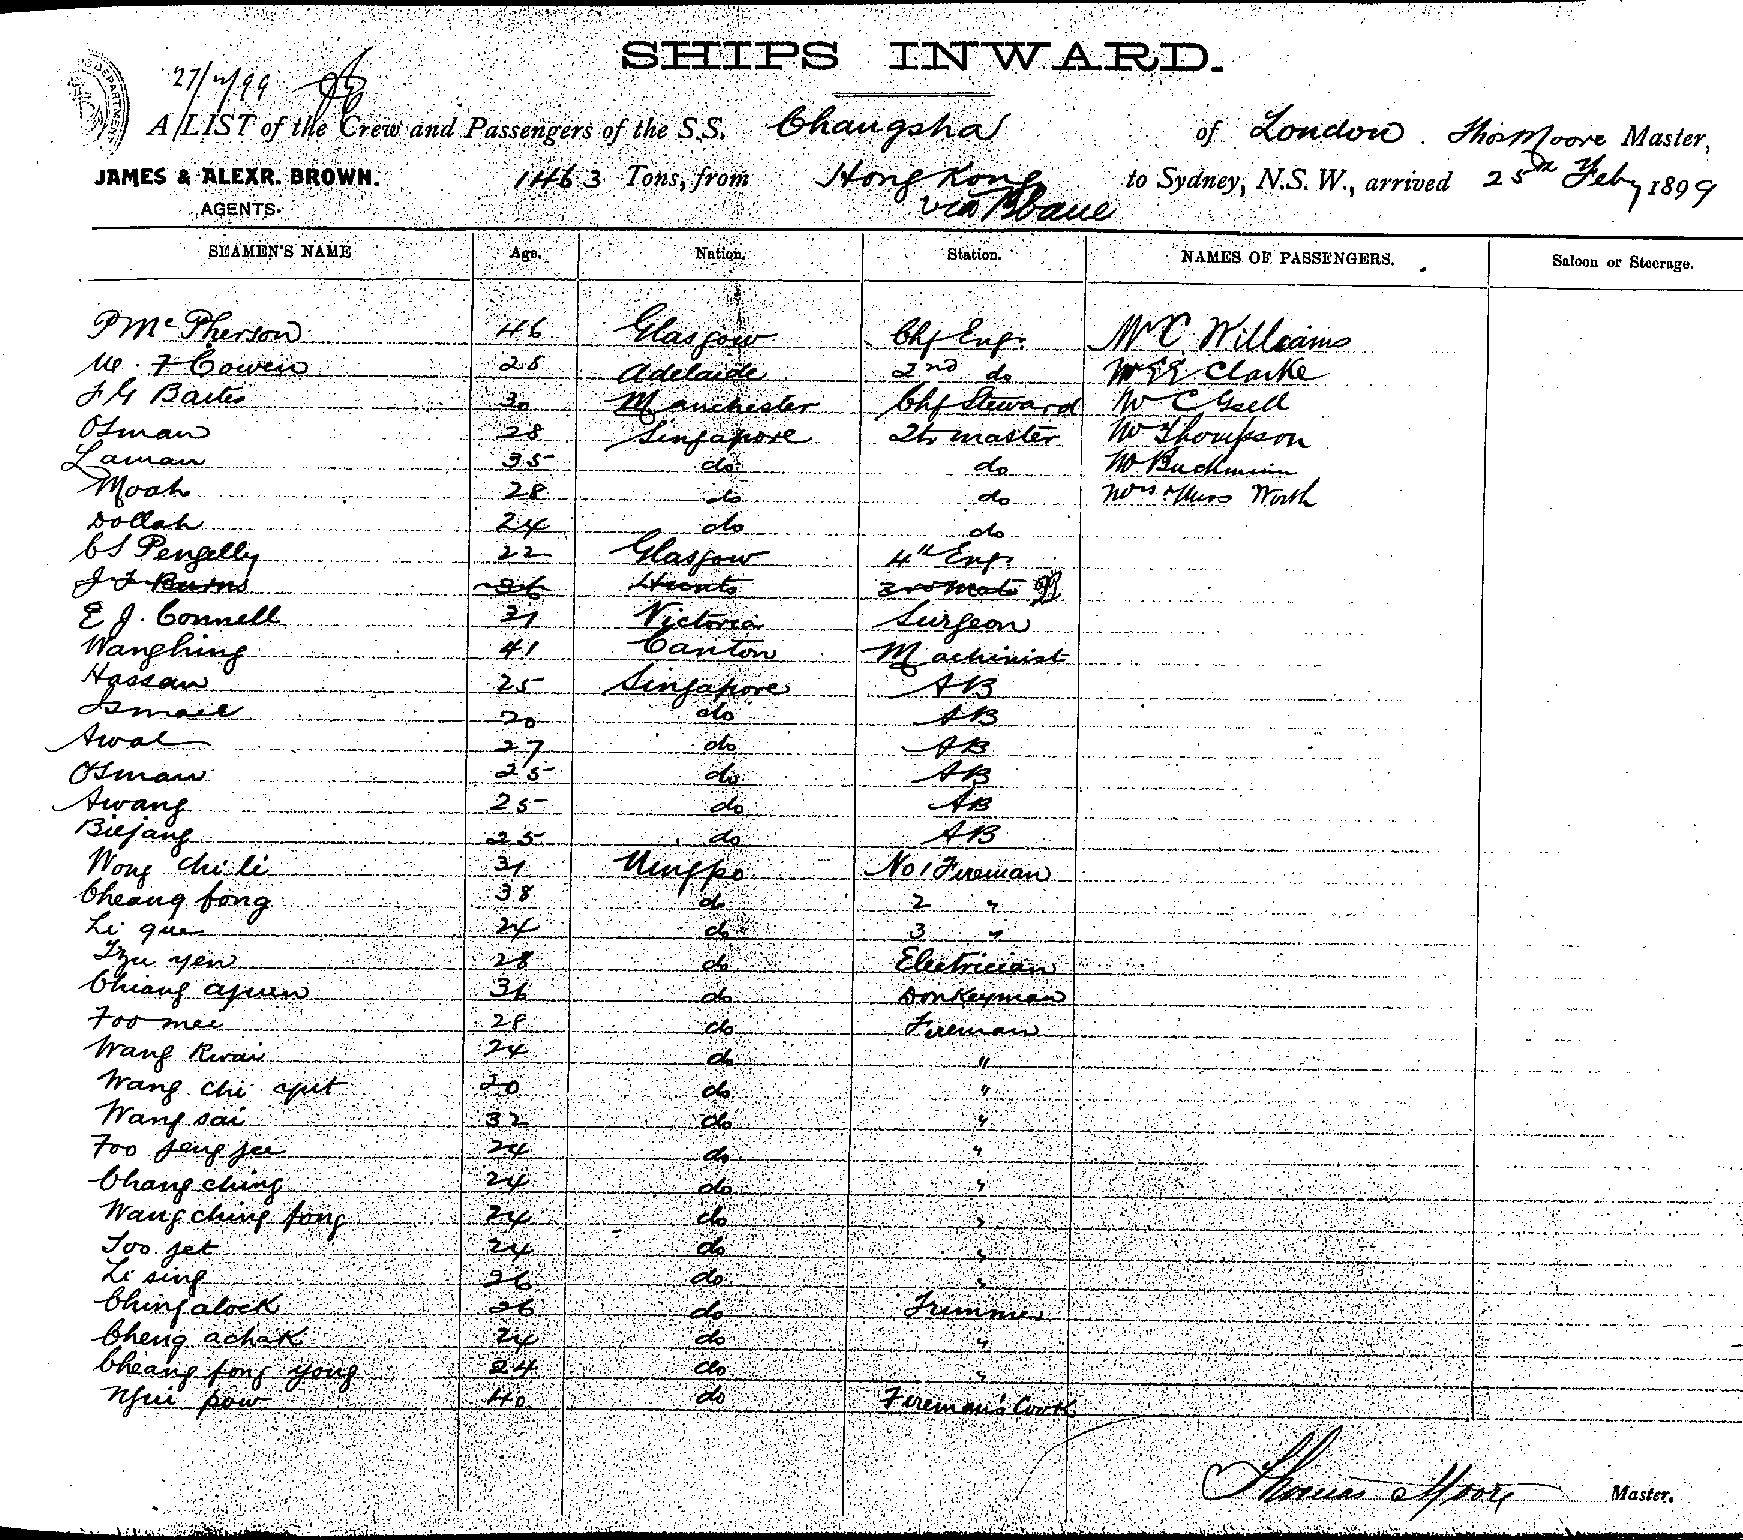 SHIPS INWARD.
27/2/99
A LIST of the Crew and Passengers of the S.S. Changsha of London. Thos Moore Master,
JAMES & ALEXR. BROWN. 1463 Tons, from Hong Kong to Sydney, N.S.W., arrived 25th Feby 1899
AGENTS. via Bbane
SEAMEN'S NAME Age. Nation. Station. NAMES OF PASSENGERS. Saloon or Steerage.
P McPherson 46 Glasgow Chf Engr Mr C Williams
F Cowen 28 Adelaide 2nd do Mr Clarke
F G Bates 30 Manchester Chf Steward Mr C Gsell
Osman 28 Singapore Qtr master Mr Thompson
Laman 35 do do Mr
Moah 28 do do Mrs & Miss Worth
Dollah 24 do do
C S Pengelly 22 Glasgow 4th Engr
J F Burns 26 Hunts 3rd Mate
E J. Connell 31 Victoria Surgeon
Wanghing 41 Canton Machinist
Hassan 25 Singapore AB
Ismail 20 do AB
Awal 27 do AB
Osman 25 do AB
Awang 25 do AB
Biejang 25 do AB
Wong chi li 31 Ningpo No 1 Fireman
Cheang fong 38 do 2 "
Li que 24 do 3 "
Tzu yen 28 do Electrician
Chiang 36 do Donkeyman
Foo mee 28 do Fireman
Wang Kwai 24 do "
Wang chi 20 do "
Wang sai 32 do "
Foo 24 do "
Chang ching 24 do "
Wang ching fong 24 do "
Foo jet 24 do "
Li sing 26 do "
Ching alock 26 do Trimmer
Cheng achak 24 do "
Cheang fong yong 24 do "
pow 40 do Fireman's Cook
Thomas Moore Master.